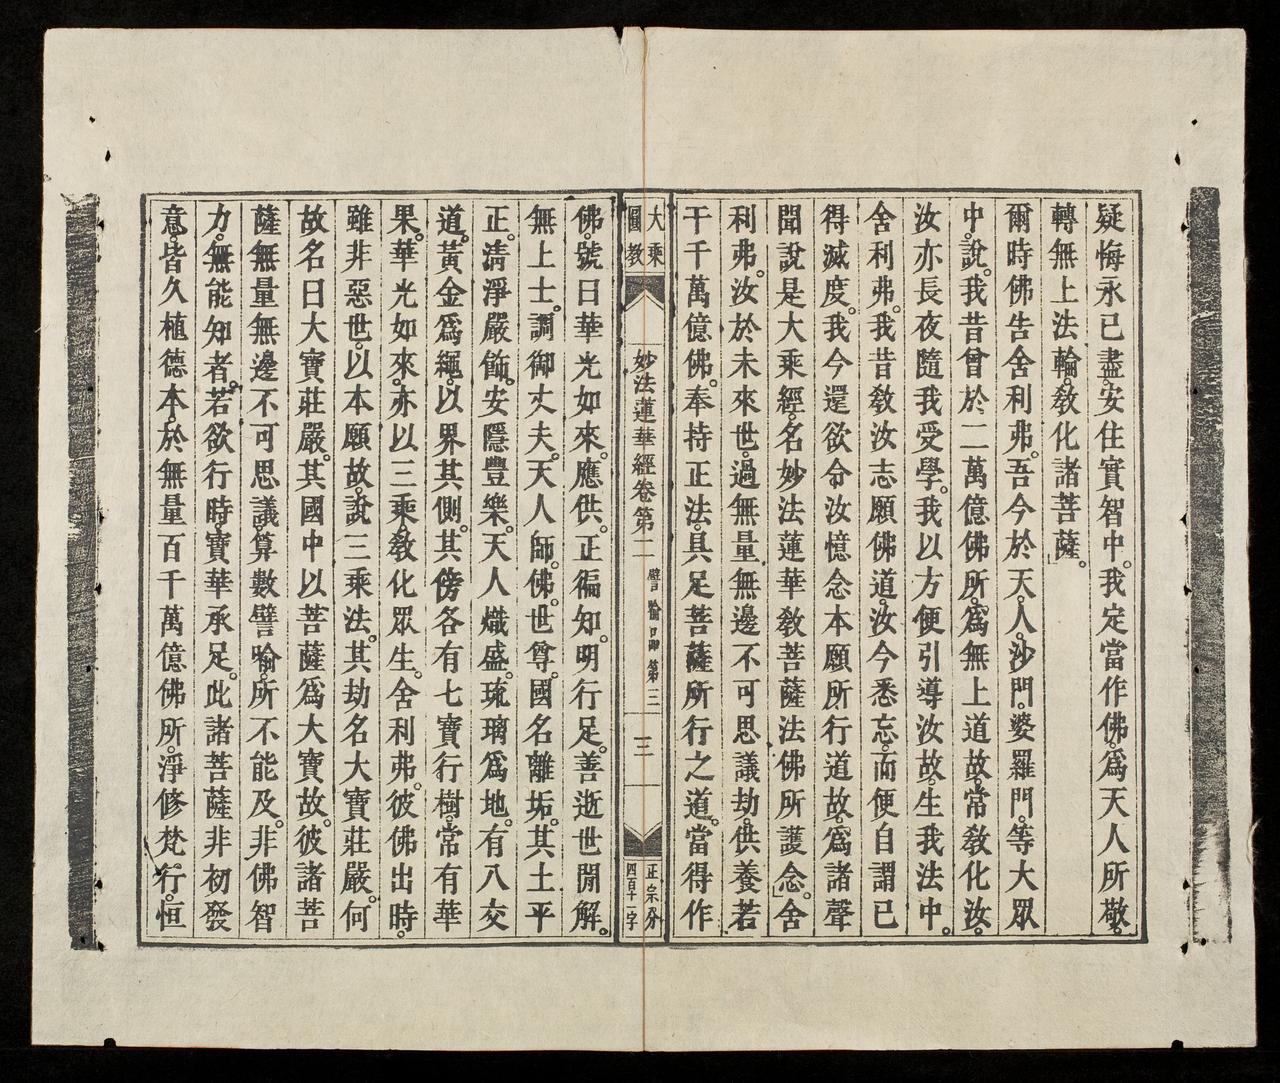 疑悔永已盡。安住實智中。我定當作佛。爲天人所敬。
轉無上法輪。敎化諸菩薩。
爾時佛告舍利弗。吾今於天。人。沙門。婆羅門。等大眾
中。說。我昔曾於二萬億佛所。爲無上道故。常敎化汝。
汝亦長夜隨我受學。我以方便引導汝故。生我法中。
舍利弗。我昔敎汝志願佛道。汝今悉忘。而便自謂已
得滅度。我今還欲令汝憶念本願所行道故。爲諸聲
聞說是大乘經。名妙法蓮華敎菩薩法佛所護念。舍
利弗。汝於未來世。過無量無邊不可思議劫。供養若
干千萬億佛。奉持正法。具足菩薩所行之道。當得作
大乘
圓教
妙法蓮華經卷第二
譬喻品第三
三
正宗分
四百十一字
佛。號曰華光如來。應供。正徧知。明行足。善逝世閒解。
無上士。調御丈夫。天人師。佛。世尊。國名離垢。其土平
正。清淨嚴飾。安隱豐樂。天人熾盛。琉璃爲地。有八交
道。黃金爲繩。以界其側。其傍各有七寶行樹。常有華
果。華光如來。亦以三乘敎化眾生。舍利弗。彼佛出時。
雖非惡世。以本願故。說三乘法。其劫名大寶莊嚴。何
故名曰大寶莊嚴。其國中以菩薩爲大寶故。彼諸菩
薩無量無邊不可思議。算數譬喻。所不能及。非佛智
力。無能知者。若欲行時。寶華承足。此諸菩薩非初發
意。皆久植德本。於無量百千萬億佛所。淨修梵行。恒